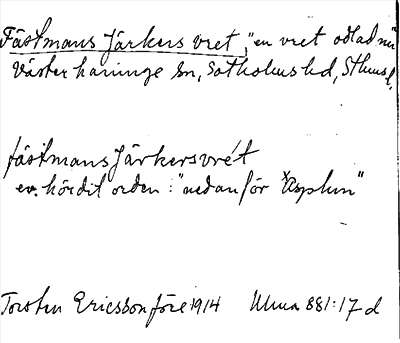 Fästmans Järkers vret, "en vret odlad nu"
Västerhaninge sn, Sotholms hd, Sthms l.
fästmans Järkersvrét
ev. hördit orden: "nedanför Äsplun"
Torsten Ericsson före 1914 Ulma 881:17 d